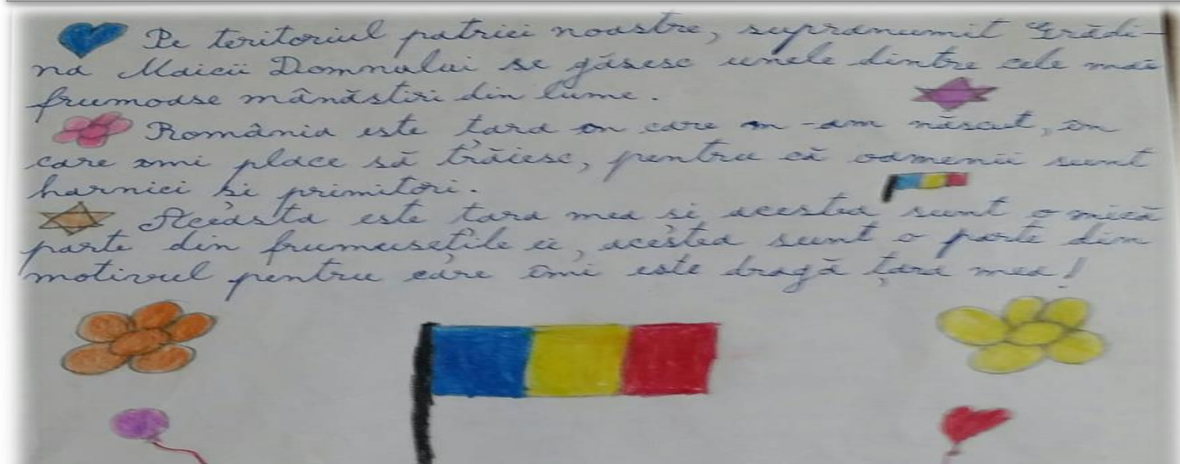 Pe teritoriul patriei noastre, supranumit Grădi-
na Maicii Domnului se găsesc unele dintre cele mai
frumoase mânăstiri din lume.
România este țara în care m-am născut, în
care îmi place să trăiesc, pentru că oamenii sunt
harnici și primitori.
Aceasta este țara mea și acestea sunt o mică
parte din frumusețile ei, acestea sunt o parte din
motivul pentru care îmi este dragă țara mea!